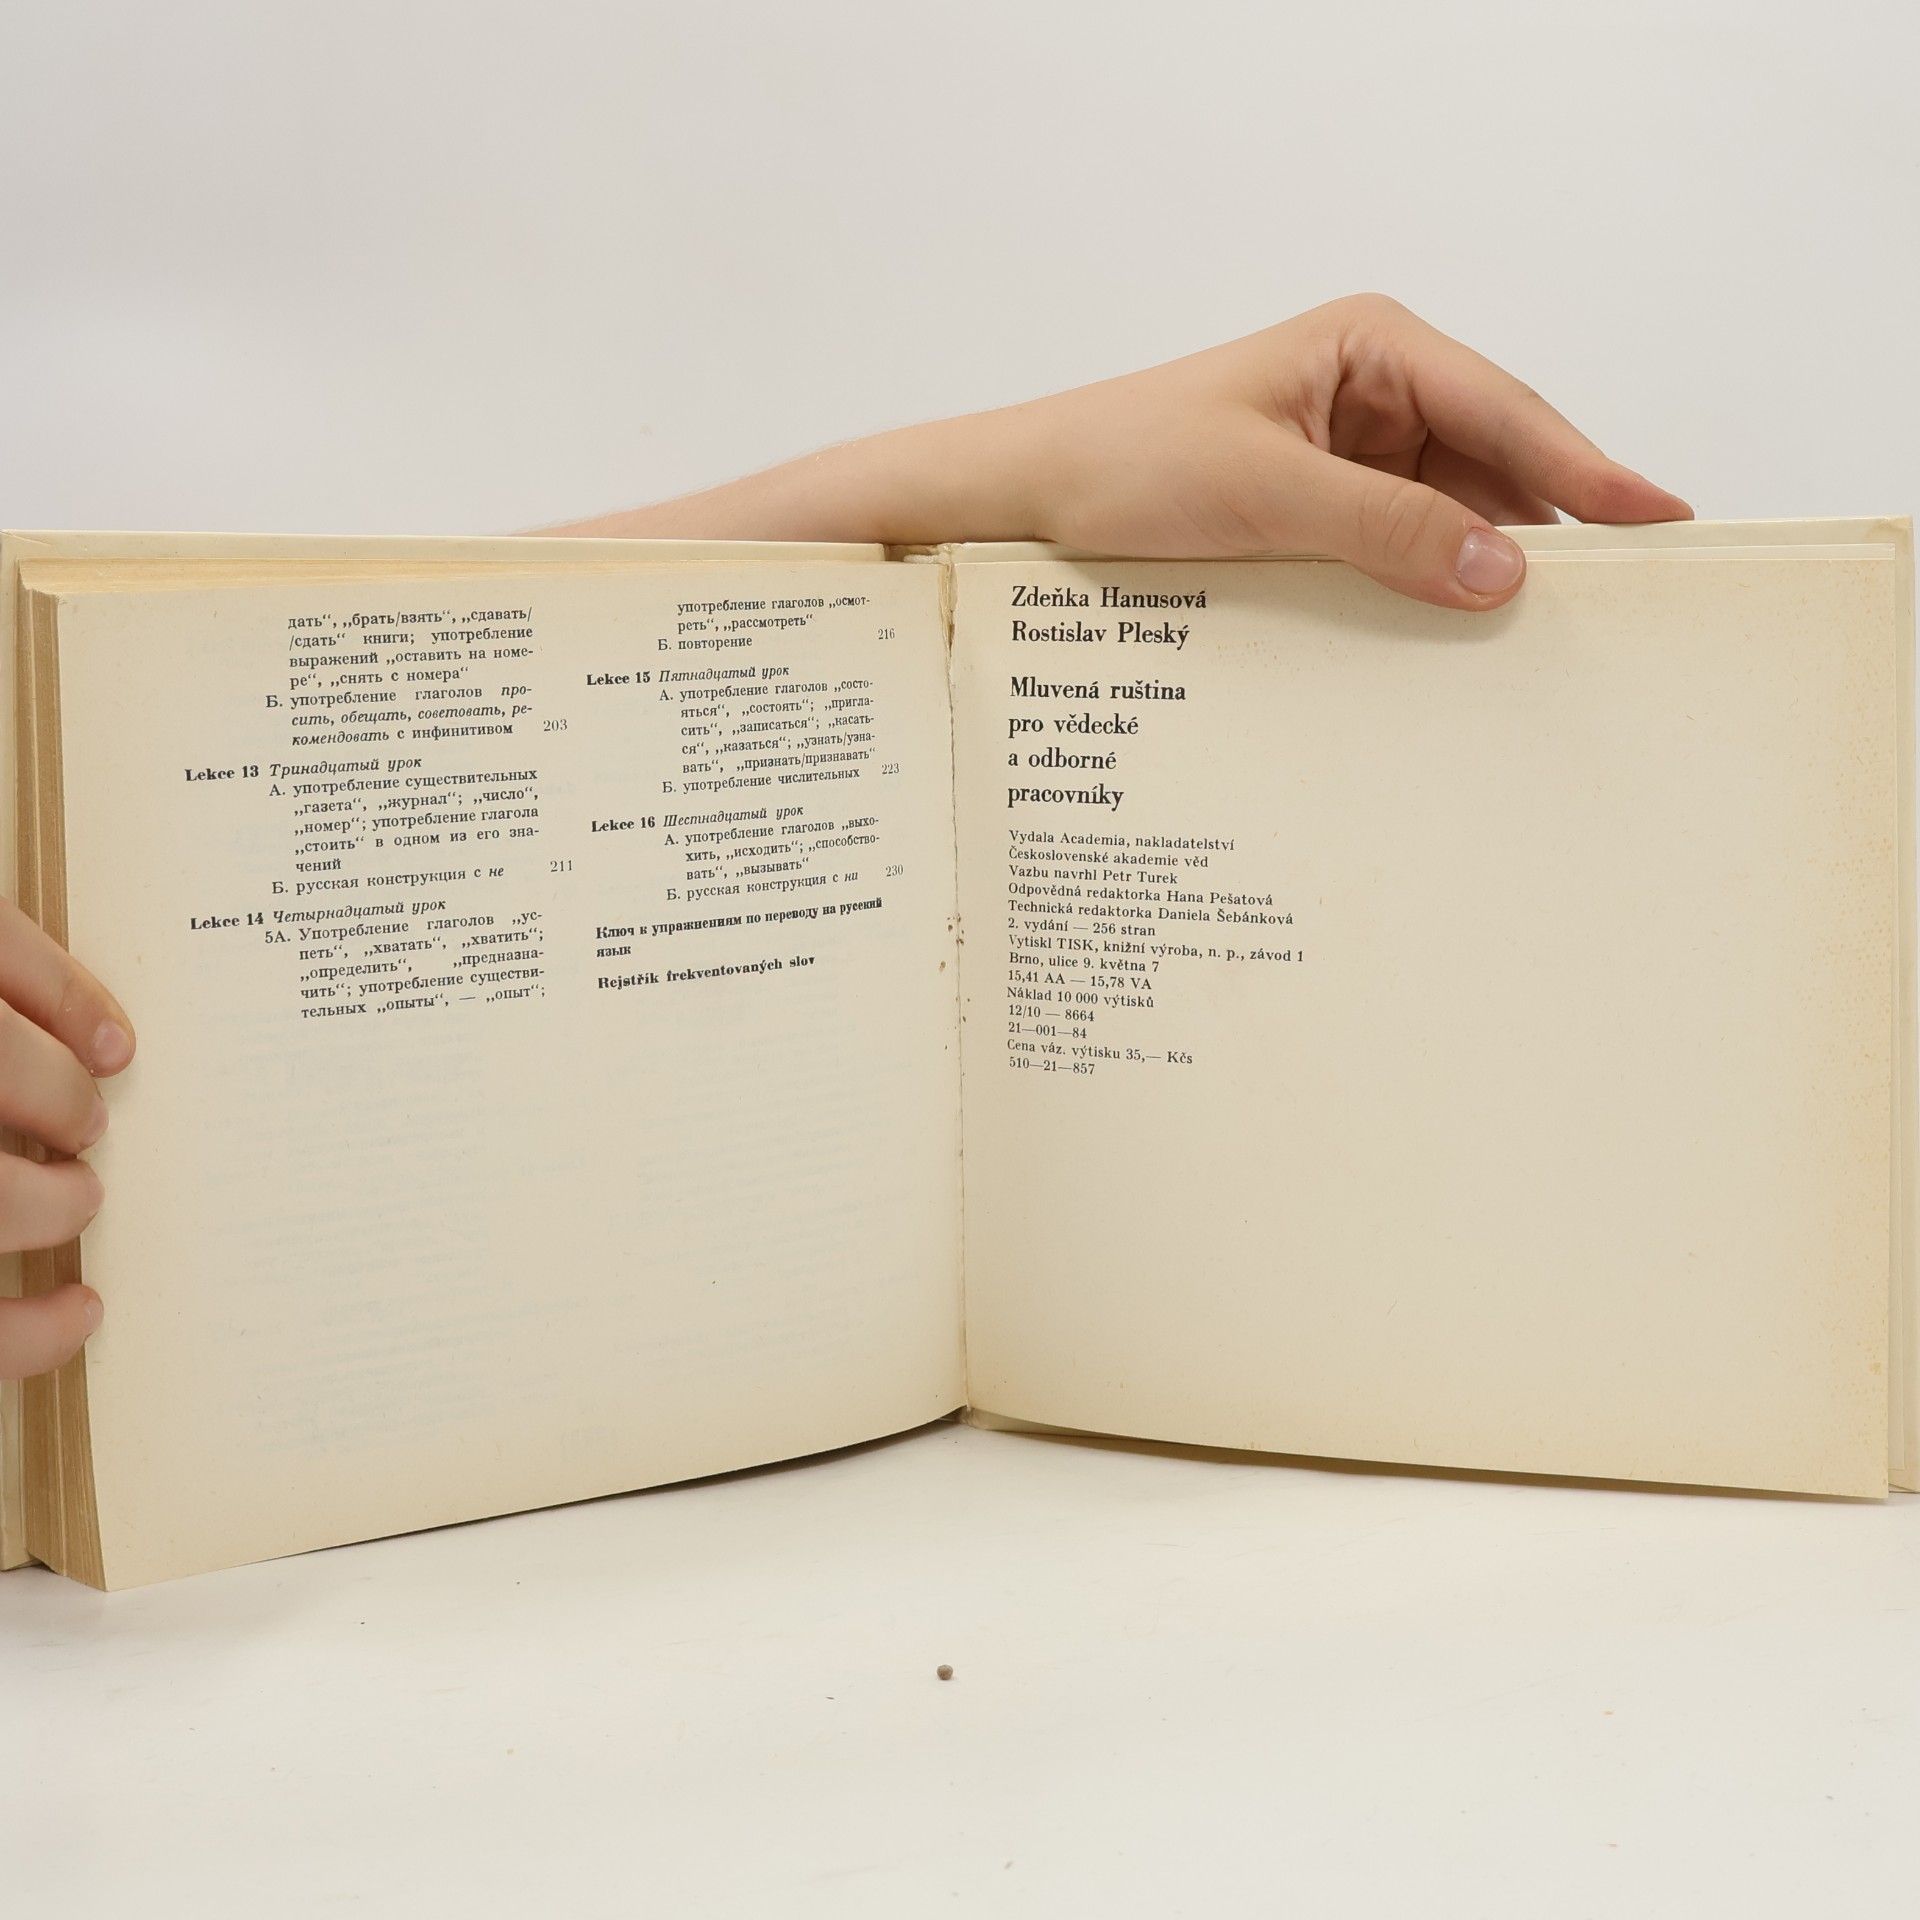 дать“, „брать/взять“, „сдавать/
/сдать“ книги; употребление
выражений „оставить на номе-
ре“, „снять с номера“
Б. употребление глаголов про-
сить, обещать, советовать, ре-
комендовать с инфинитивом 203
Lekce 13 Тринадцатый урок
А. употребление существительных
„газета“, „журнал“; „число“,
„номер“; употребление глагола
„стоить“ в одном из его зна-
чений
Б. русская конструкция с не 211
Lekce 14 Четырнадцатый урок
5А. Употребление глаголов „ус-
петь“, „хватать“, „хватить“;
„определить“, „предназна-
чить“; употребление существи-
тельных „опыты“, — „опыт“;
употребление глаголов „осмот-
реть“, „рассмотреть“
Б. повторение 216
Lekce 15 Пятнадцатый урок
А. употребление глаголов „состо-
яться“, „состоять“; „пригла-
сить“, „записаться“; „касать-
ся“, „казаться“; „узнать/узна-
вать“, „признать/признавать“
Б. употребление числительных 223
Lekce 16 Шестнадцатый урок
А. употребление глаголов „выхо-
хить, „исходить“; „способство-
вать“, „вызывать“
Б. русская конструкция с ни 230
Ключ к упражнениям по переводу на русский
язык
Rejstřík frekventovaných slov
Zdeňka Hanusová
Rostislav Pleský
Mluvená ruština
pro vědecké
a odborné
pracovníky
Vydala Academia, nakladatelství
Československé akademie věd
Vazbu navrhl Petr Turek
Odpovědná redaktorka Hana Pešatová
Technická redaktorka Daniela Šebánková
2. vydání — 256 stran
Vytiskl TISK, knižní výroba, n. p., závod 1
Brno, ulice 9. května 7
15,41 AA — 15,78 VA
Náklad 10 000 výtisků
12/10 — 8664
21—001—84
Cena váz. výtisku 35,— Kčs
510—21—857